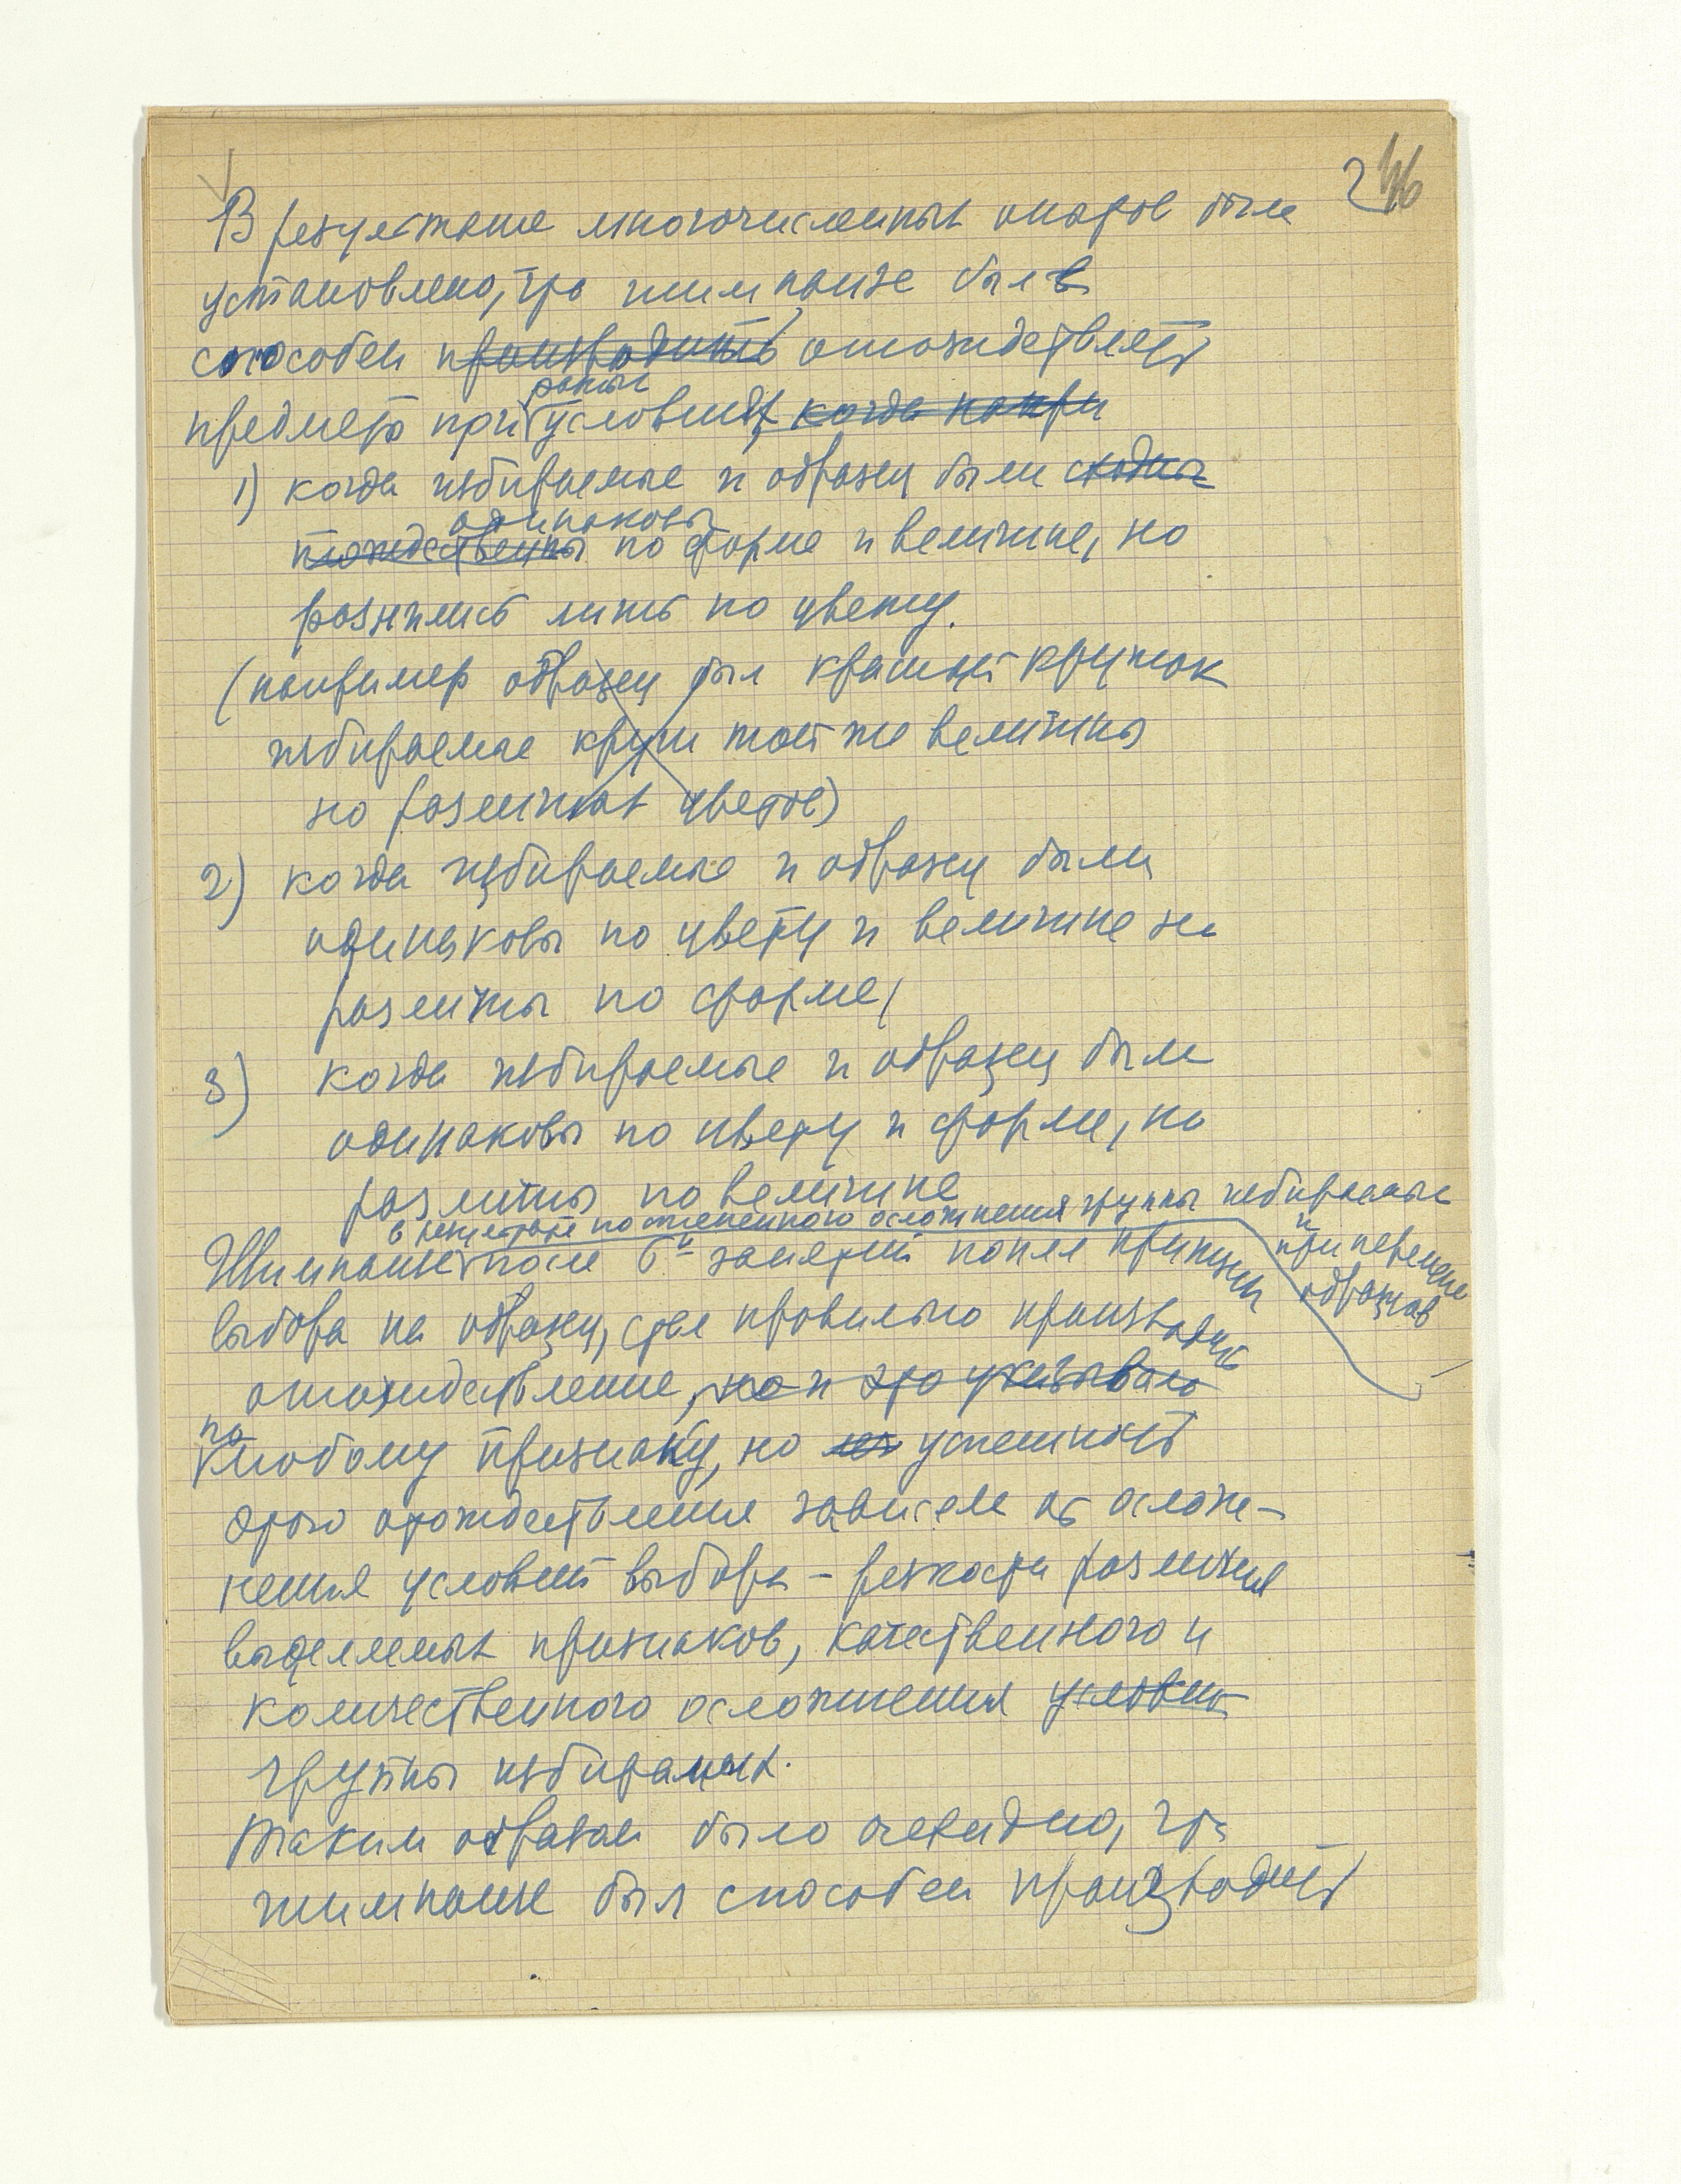 2 46
В результате многочисленных опытов было
установлено, что шимпанзе был в
способен производить отождествлять
разных
предмета при условиях, когда напри
1) когда избираемые и образец были сходны
одинаковы
тождественны по форме и величине, но
разнились лишь по цвету.
(например образец был красный кружок
избираемые круги той же величины
но различных цветов)
2) когда избираемые и образец были
одинаковы по цвету и величине но
различны по форме,
3) когда избираемые и образец были
одинаковы по цвету и форме, но
различны по величине
в результате постепенного осложнения группы избираемых
и при перемене образцов
Шимпанзе после 6и занятий понял принцип
выбора на образец, стал правильно производить
отождествление, но и это указывало
по
к любому признаку, но успешность
этого отождествления зависела от осложнения
нения условий выбора – резкости различия
выделяемых признаков, качественного и
количественного осложнения условий
группы избираемых.
Таким образом было очевидно, что
шимпанзе был способен производить